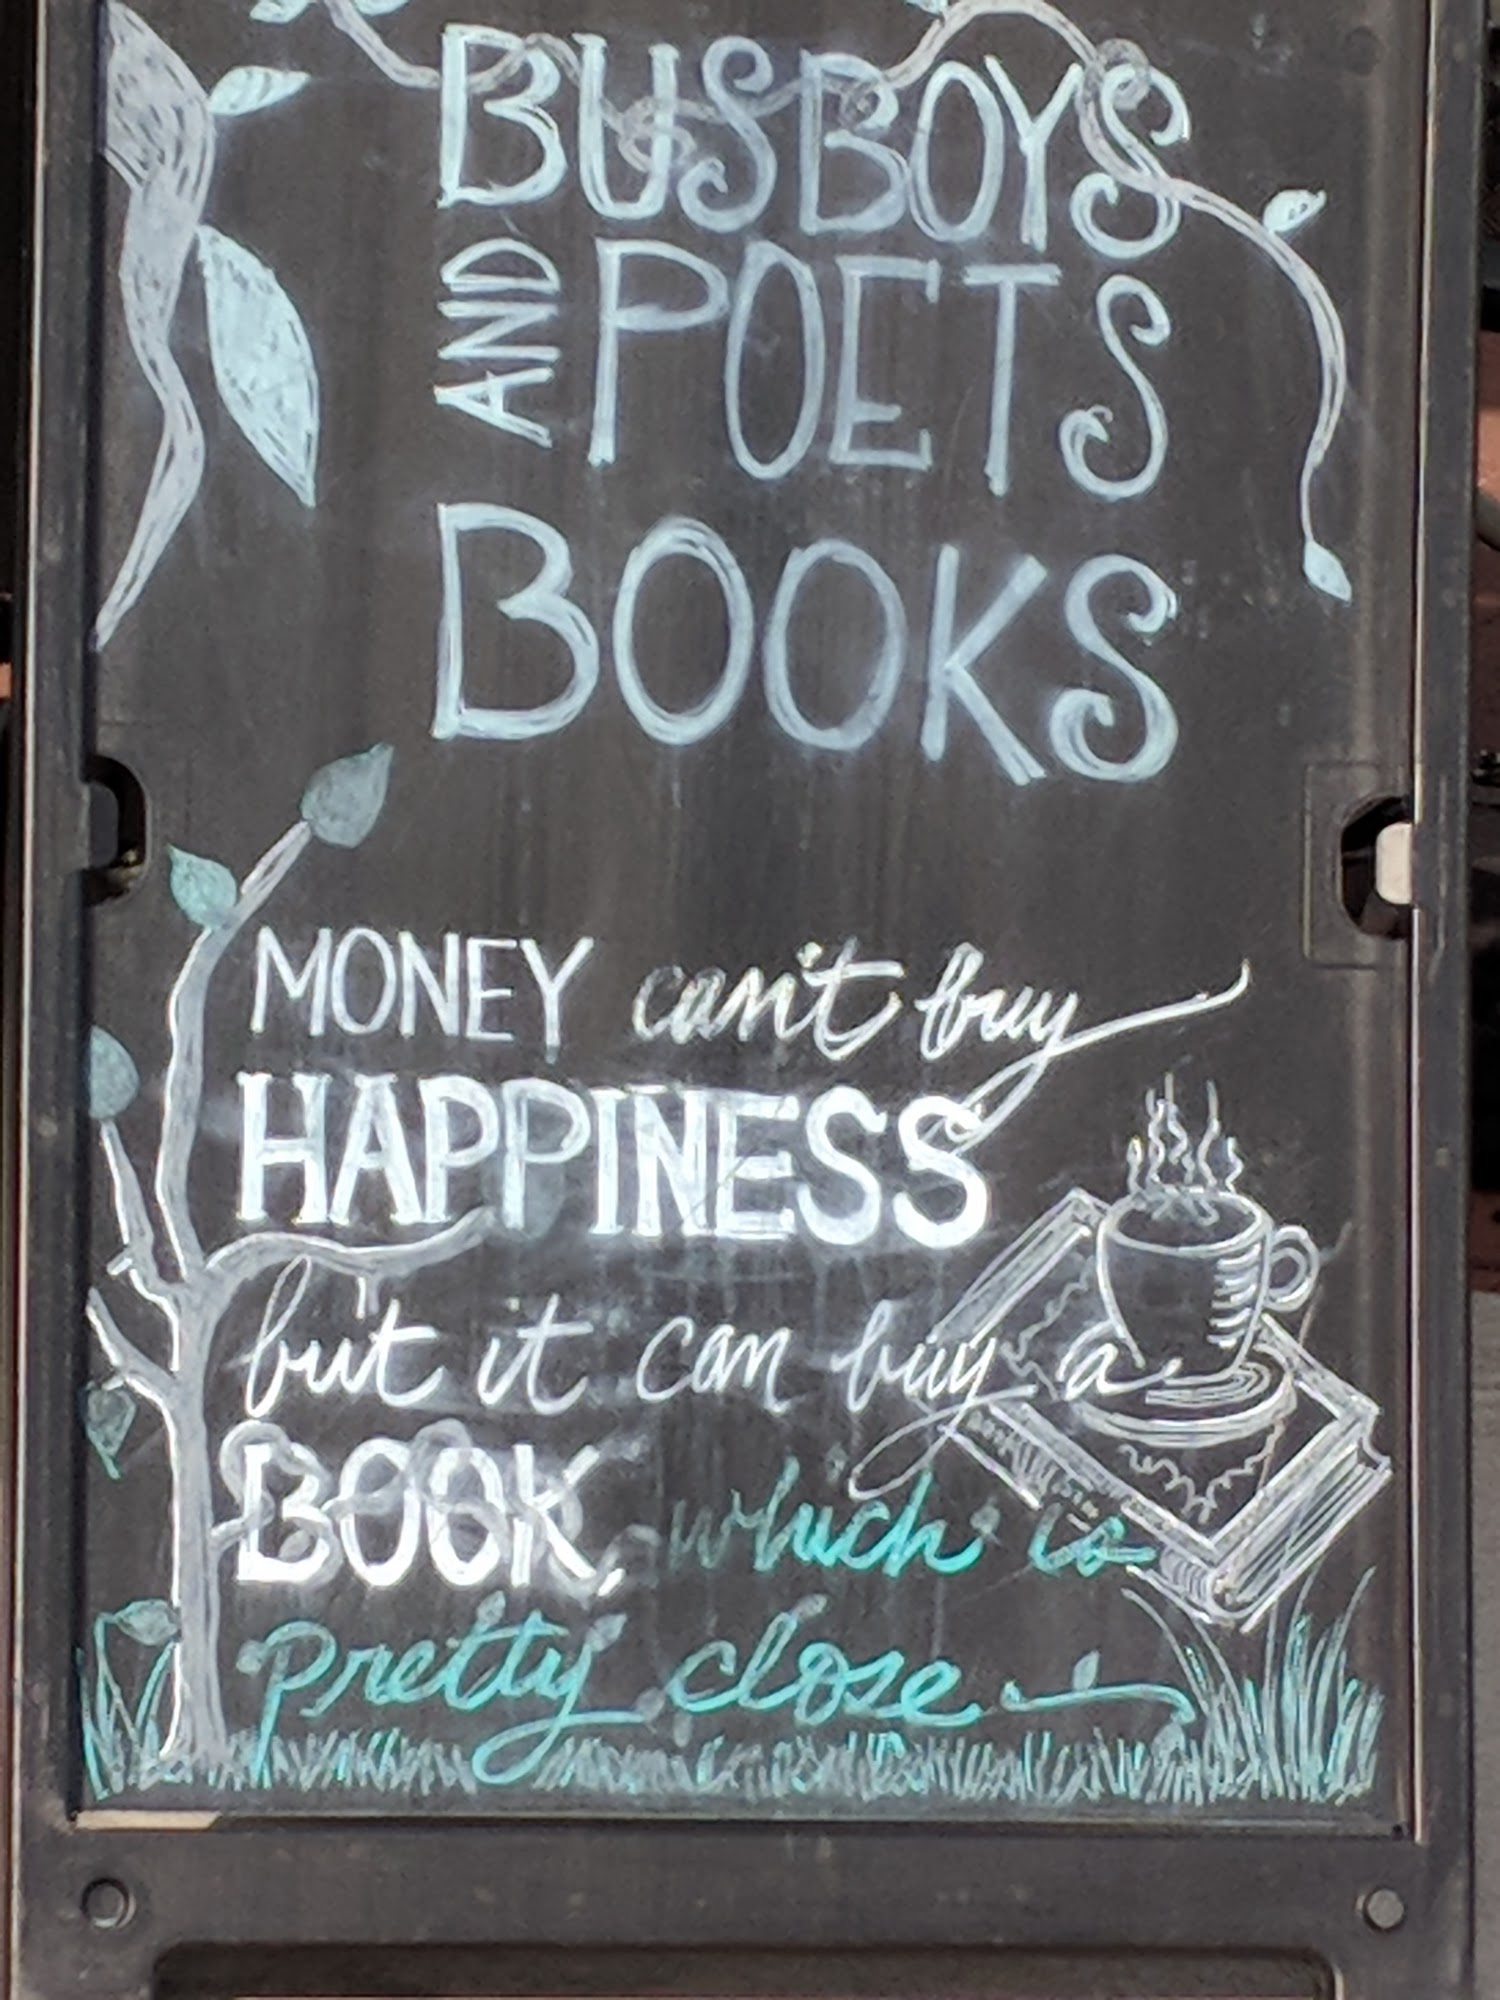 BUSBOYS
AND POETS
BOOKS
MONEY can't buy
HAPPINESS
but it can buy a
BOOK, which is
pretty close